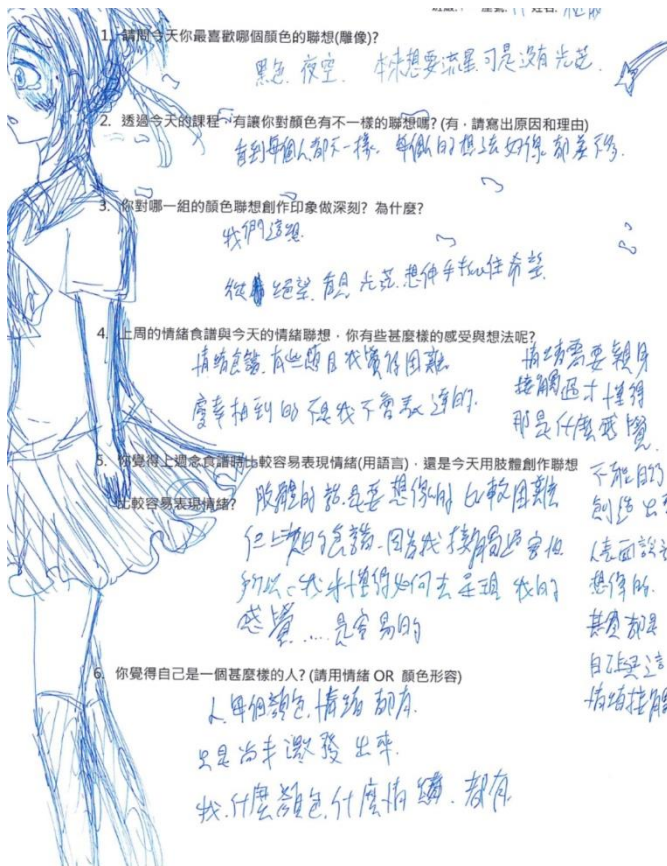 1. 請問今天你最喜歡哪個顏色的聯想(雕像)?
黑色. 夜空. 本來想要流星.可是沒有光芒.
2. 透過今天的課程，有讓你對顏色有不一樣的聯想嗎? (有，請寫出原因和理由)
看到每個人都不一樣. 每個人的想法好像都差不多.
3. 你對哪一組的顏色聯想創作印象做深刻? 為什麼?
我們這組
從絕望.看見光芒.想伸手抓住希望
4. 上周的情緒食譜與今天的情緒聯想，你有些甚麼樣的感受與想法呢?
情緒食譜.有些題目我覺得困難
慶幸抽到的不是我不會表達的.
情緒需要親身
接觸過才懂得
那是什麼感覺
5. 你覺得上週念食譜時比較容易表現情緒(用語言)，還是今天用肢體創作聯想
比較容易表現情緒?
肢體的話.是要想像的 比較困難
但上週的食譜.因為我接觸過害怕
所以、我才懂得如何去呈現 我的
感覺....是容易的
不能的
創造出
表面說
想像的.
其實都是
自己與這
情緒接觸
6. 你覺得自己是一個甚麼樣的人? (請用情緒 OR 顏色形容)
人.每個顏色.情緒 都有.
只是尚未激發出來.
我.什麼顏色.什麼情緒.都有